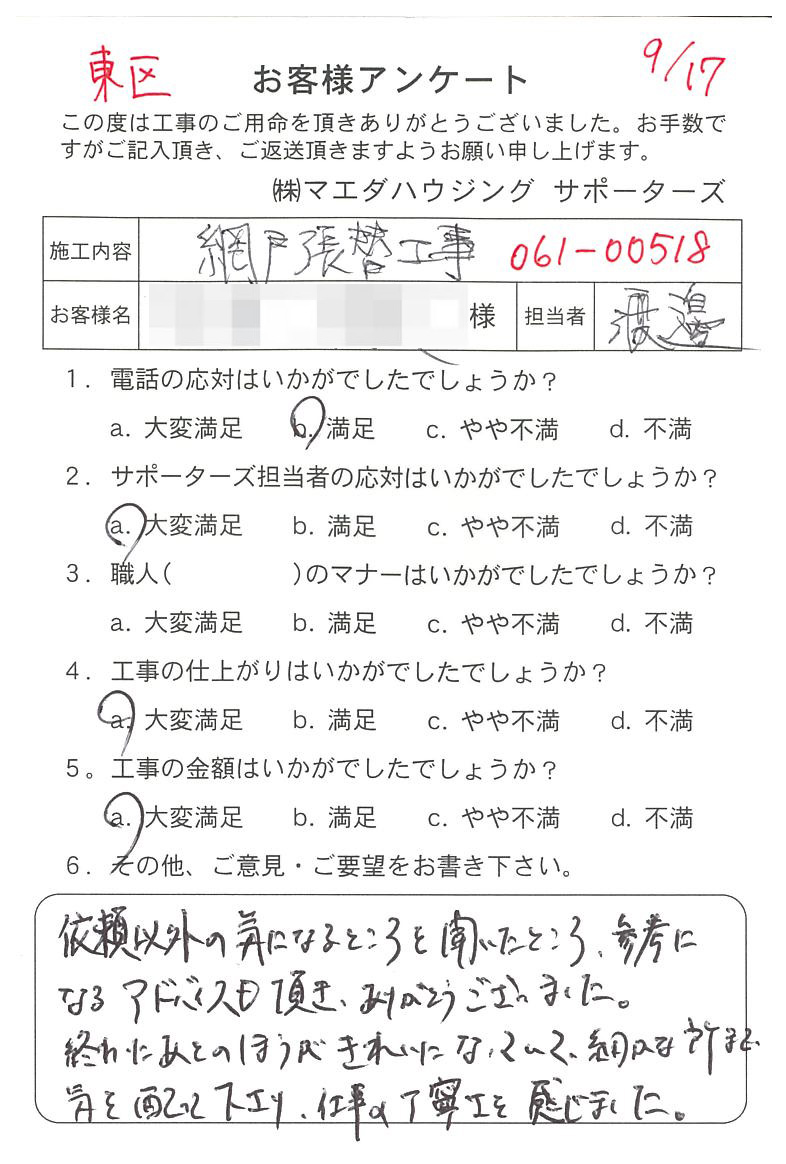 東区
お客様アンケート
9/17
この度は工事のご用命を頂きありがとうございました。お手数で
すがご記入頂き、ご返送頂きますようお願い申し上げます。
㈱マエダハウジング サポーターズ
施工内容 網戸張替工事 061-00518
お客様名 様 担当者 渡邉
1. 電話の応対はいかがでしたでしょうか?
a. 大変満足 b. 満足 c. やや不満 d. 不満
2. サポーターズ担当者の応対はいかがでしたでしょうか?
a. 大変満足 b. 満足 c. やや不満 d. 不満
3. 職人( )のマナーはいかがでしたでしょうか?
a. 大変満足 b. 満足 c. やや不満 d. 不満
4. 工事の仕上がりはいかがでしたでしょうか?
a. 大変満足 b. 満足 c. やや不満 d. 不満
5。工事の金額はいかがでしたでしょうか?
a. 大変満足 b. 満足 c. やや不満 d. 不満
6. その他、ご意見・ご要望をお書き下さい。
依頼以外の気になるところを聞いたところ、参考に
なるアドバイスも頂き、ありがとうございました。
終わったあとのほうがきれいになっていて、細かな所まで
気を配って下さり、仕事の丁寧さを感じました。